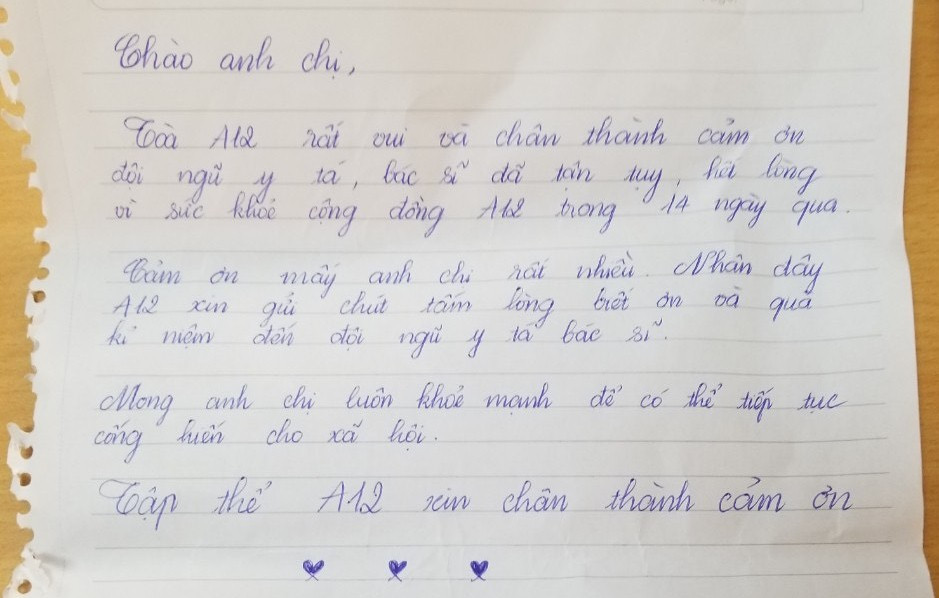 Chào anh chị,
Toà A12 rất vui và chân thành cảm ơn
đội ngũ y tá, bác sĩ đã tận tụy, hết lòng
vì sức khoẻ cộng đồng A12 trong 14 ngày qua.
Cảm ơn mấy anh chị rất nhiều. Nhân đây
A12 xin gửi chút tấm lòng biết ơn và quà
kỉ niệm đến đội ngũ y tá bác sĩ.
Mong anh chị luôn khoẻ mạnh để có thể tiếp tục
cống hiến cho xã hội.
Tập thể A12 xin chân thành cảm ơn